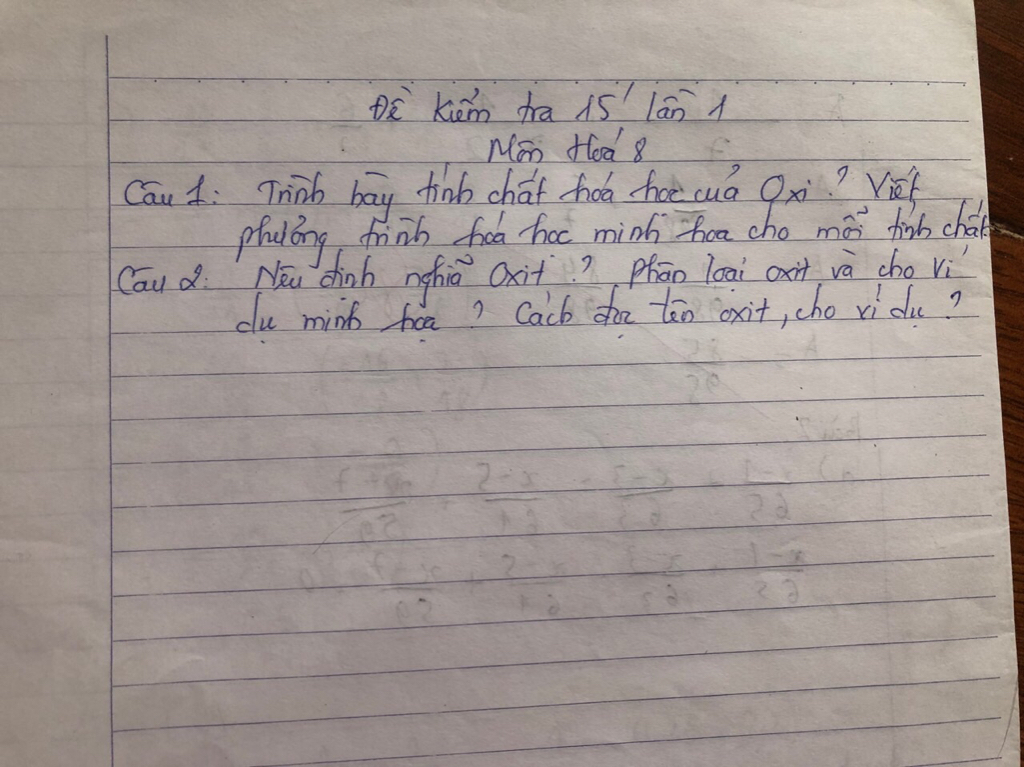 Đề kiểm tra 15' lần 1
Môn Hoá 8
Câu 1: Trình bày tính chất hoá học của Oxi? Viết
phương trình hoá học minh hoạ cho mỗi tính chất
Câu 2: Nêu định nghĩa Oxit? Phân loại oxit và cho ví
dụ minh họa? Cách đọc tên oxit, cho ví dụ?